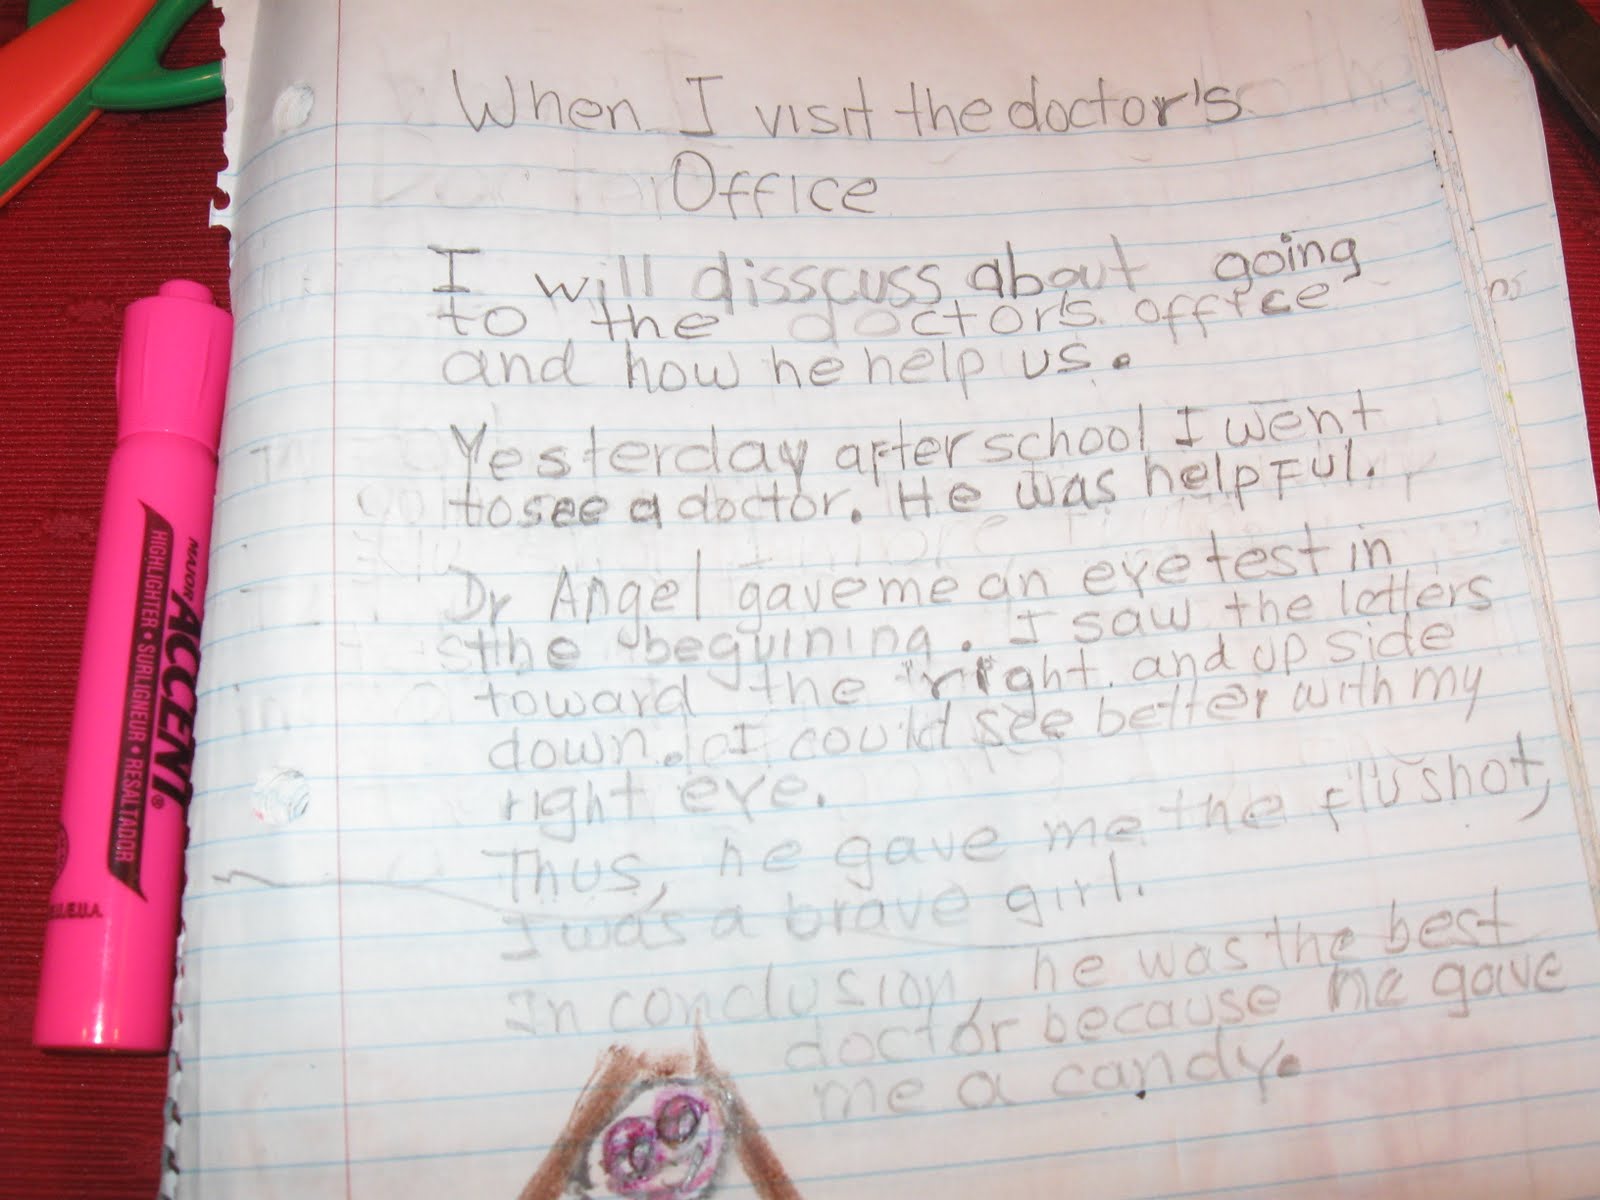 When I visit the doctor's
Office
I will disscuss about going
to the doctor's office
and how he help us.
Yesterday after school I went
to see a doctor. He was helpful.
Dr Angel gave me an eye test in
the beguining. I saw the letters
toward the right and up side
down. I could see better with my
right eye.
Thus, he gave me the flu shot,
I was a brave girl.
In conclusion, he was the best
doctor because he gave
me a candy.
MAJOR
ACCENT®
HIGHLIGHTER • SURLIGNEUR • RESALTADOR